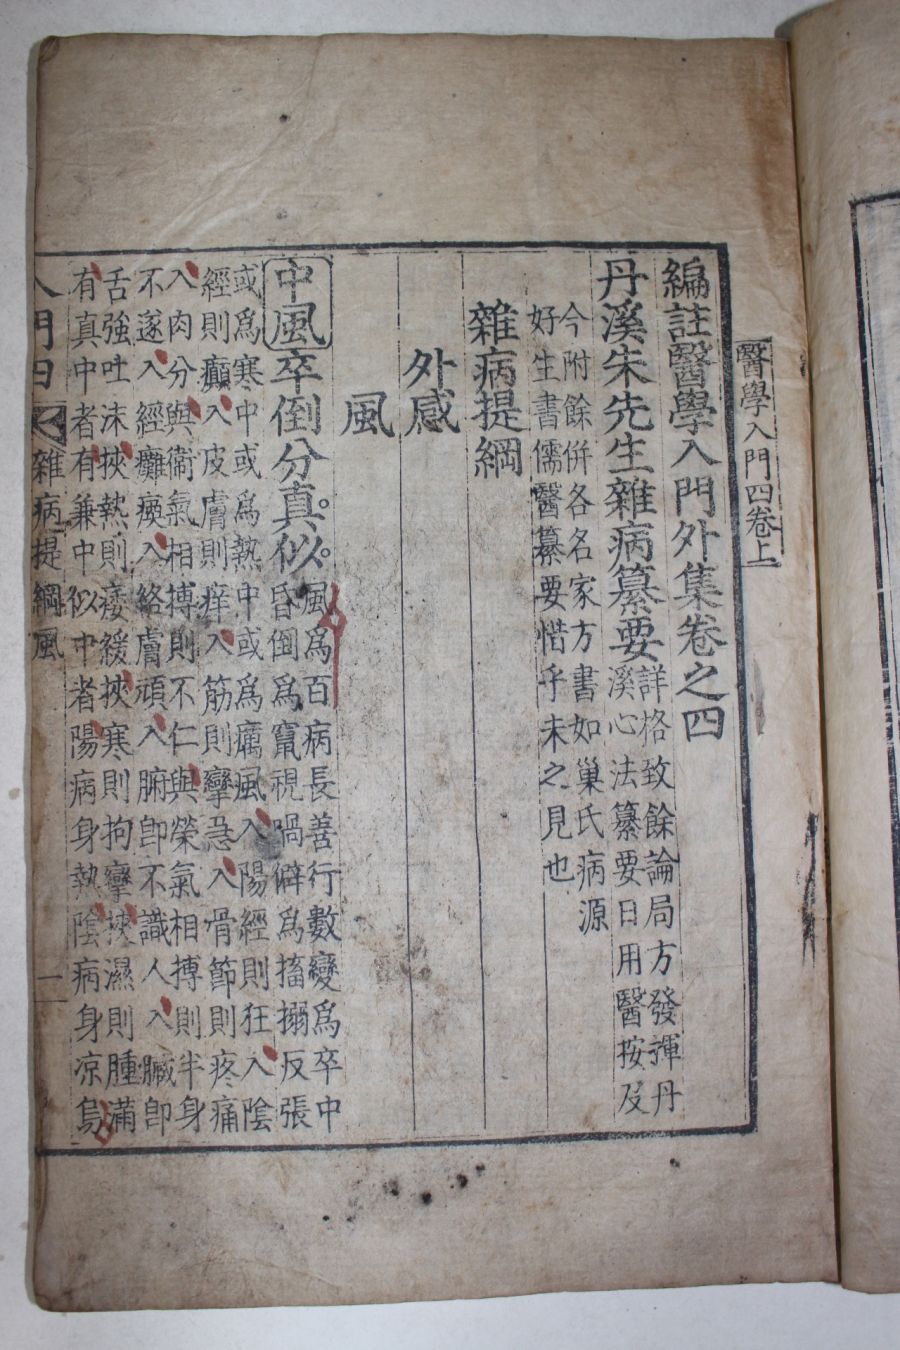 醫學入門四卷上
編註醫學入門外集卷之四
丹溪朱先生雜病纂要
詳格致餘論局方發揮丹
溪心法纂要日用醫按及
今附餘併各名家方書如巢氏病源
好生書儒醫纂要惜乎未之見也
雜病提綱
外感
風
中風卒倒分真似
風爲百病長善行數變爲卒中
昏倒爲竄視喎僻爲搐搦反張
或爲寒中或爲熱中或爲癘風入陽經則狂入陰
經則癲入皮膚則痒入筋則攣急入骨節則疼痛
入肉分與衞氣相搏則不仁與榮氣相搏則半身
不遂入經癱瘓入絡膚頑入腑卽不識人入臟卽
舌強吐沫挾熱則痿緩挾寒則拘攣挾濕則腫滿
有真中者有兼中似中者陽病身熱陰病身凉烏
入門四 雜病提綱風 一